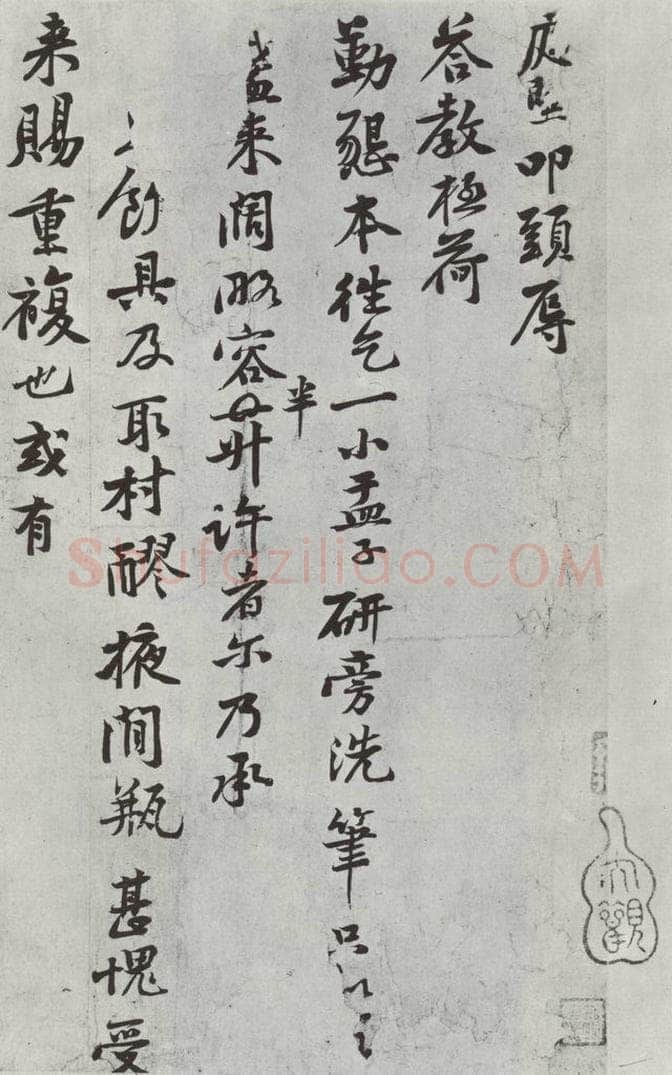 庭坚叩頭辱
荅教極荷
勤懇本往乞一小盂子研旁洗筆只以
盖来阔略容半升许者尔乃承
飭具及取村醪掖间瓶甚愧受
来賜重複也或有
大觀
Shufaziliao.COM